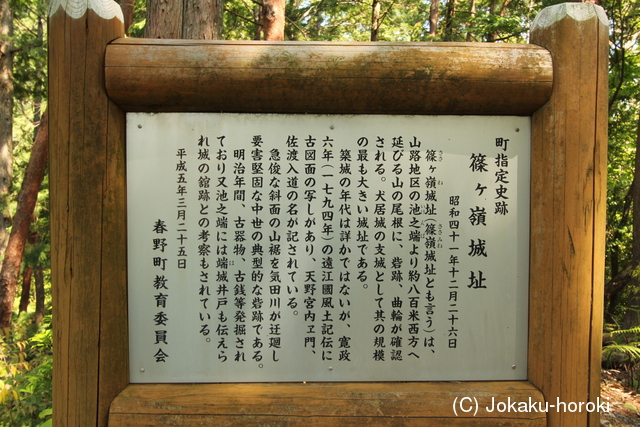 町指定史跡
篠ヶ嶺城址
昭和四十一年十二月二十六日
篠ヶ嶺城址(篠嶺城址とも言う)は、
山路地区の池之端より約八百米西方へ
延びる山の尾根に、砦跡、曲輪が確認
される。犬居城の支城として其の規模
の最も大きい城址である。
築城の年代は詳かではないが、寛政
六年(一七九四年)の遠江國風土記伝に
古図面の写しがあり、天野宮内ヱ門、
佐渡入道の名が記されている。
急俊な斜面の山裾を気田川が迂廻し
要害堅固な中世の典型的な砦跡である。
明治年間、古器物、古銭等発掘され
ており又池之端には端城井戸も伝えら
れ城の舘跡との考察もされている。
平成五年三月二十五日
春野町教育委員会
(C) Jokaku-horoki